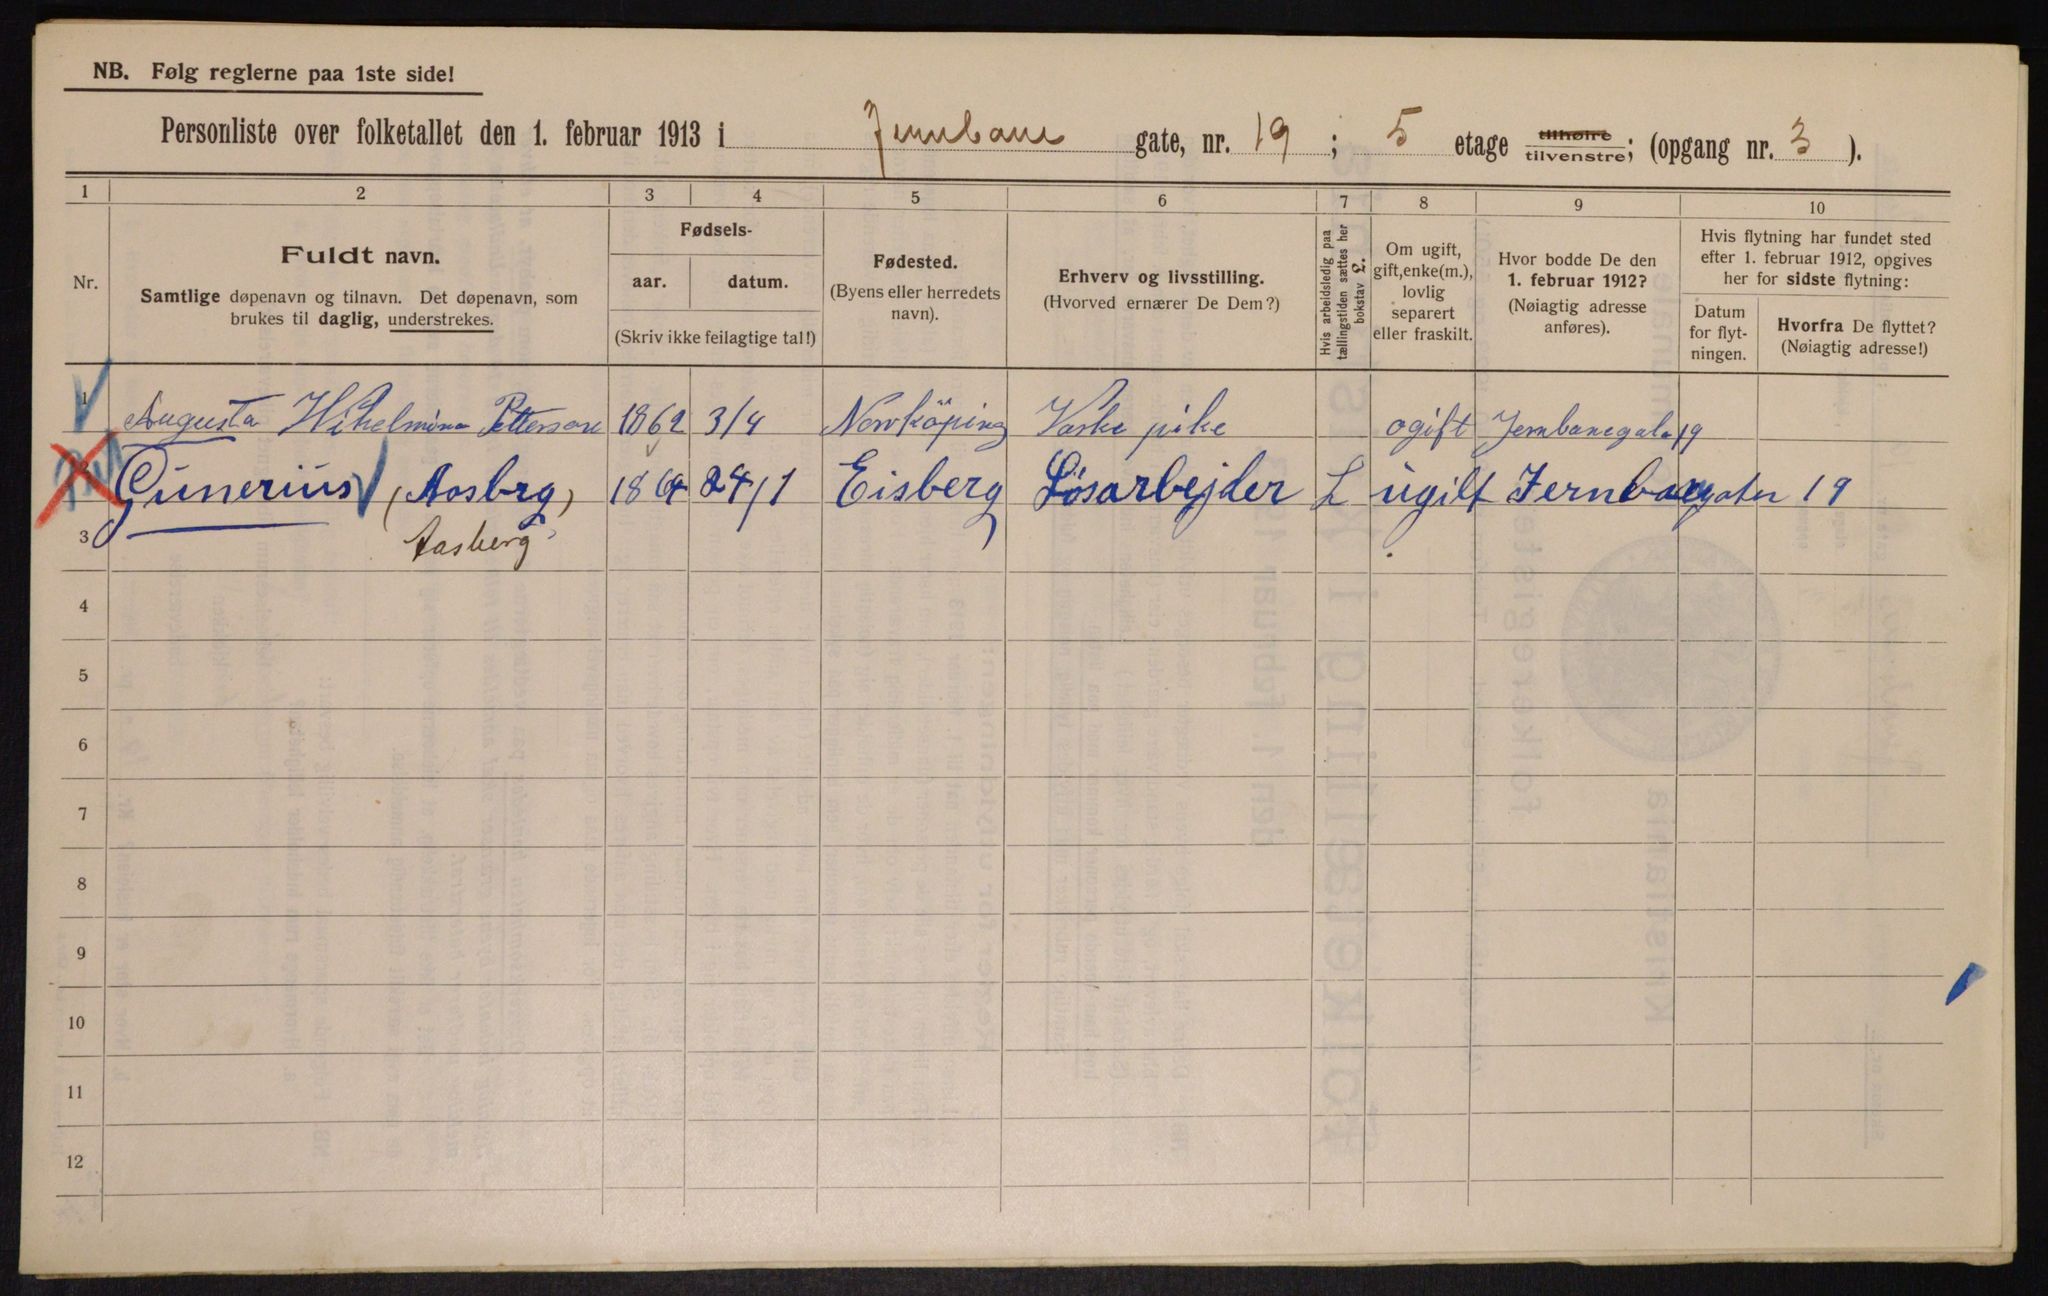 NB. Følg reglerne paa 1ste side!
Personliste over folketallet den 1. februar 1913 i Jernbane gate, nr. 19 ; 5 etage tilhøire tilvenstre; (opgang nr. 3 ).
1 2 3 4 5 6 7 8 9 10
Nr.
Fuldt navn.
Samtlige døpenavn og tilnavn. Det døpenavn, som
brukes til daglig, understrekes.
Fødsels-
aar. datum.
(Skriv ikke feilagtige tal!)
Fødested.
(Byens eller herredets
navn).
Erhverv og livsstilling.
(Hvorved ernærer De Dem?)
Hvis arbeidsledig paa
tællingstiden sættes her
bokstav L.
Om ugift,
gift, enke(m.),
lovlig
separert
eller fraskilt.
Hvor bodde De den
1. februar 1912?
(Nøiagtig adresse
anføres).
Hvis flytning har fundet sted
efter 1. februar 1912, opgives
her for sidste flytning:
Datum
for flyt-
ningen.
Hvorfra De flyttet?
(Nøiagtig adresse!)
1 Augusta Wilhelmina Petterson 1862 3/4 Norrköping Vaske pike ogift Jernbanegata 19
2 Gunerius (Aasbrg) 1864 24/1 Eisberg Løsarbejder L ugift Jernbanegaten 19
3 Aasberg
4
5
6
7
8
9
10
11
12